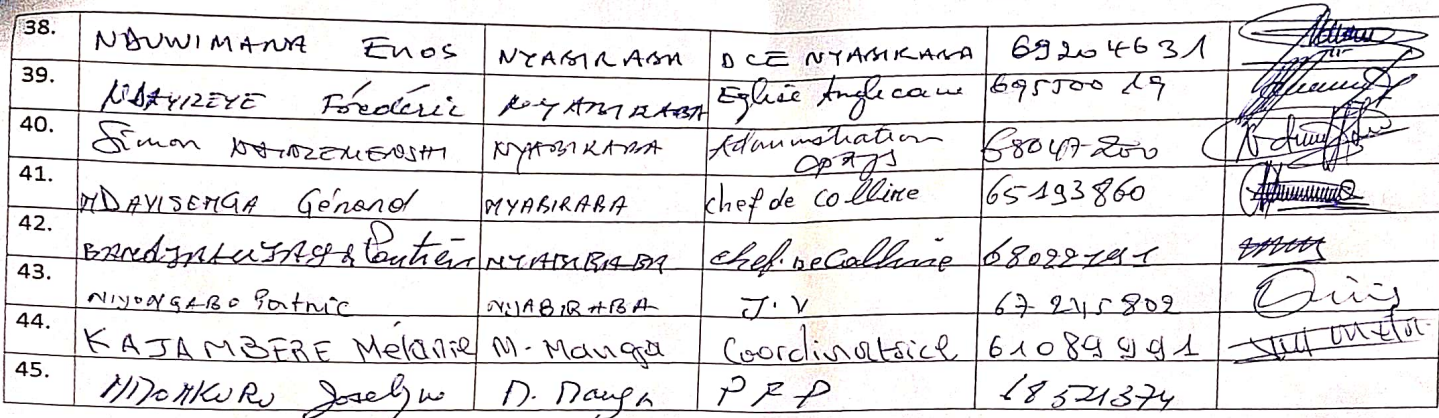 38. NDUWIMANA Enos NYABIRABA DCE NYABIRABA 69204631
39. NDAYIZEYE Fréderic NYABIRABA Eglise Anglicane 69550019
40. Simon NYABIRABA Administration 68047200
41. NDAYISENGA Génard NYABIRABA chef de colline 65193860
42. NYABIRABA chef de Colline
43. NIYONGABO Patric NYABIRABA J.V 67 215802
44. KAJAMBERE Mélanie M. Manga Coordinatrice 61089991
45. Joselyne M. Manga 68521374